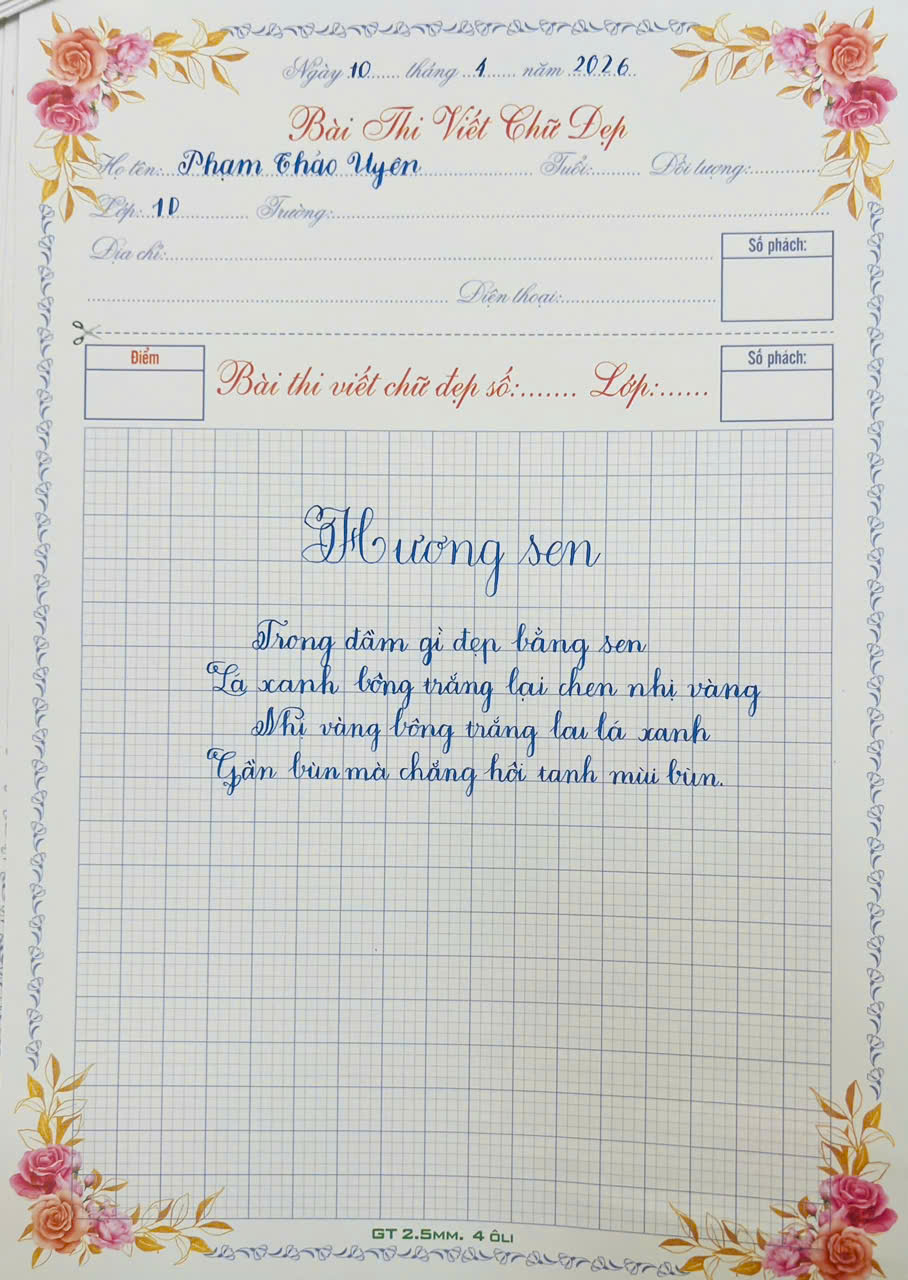 Ngày 10 tháng 1 năm 2026
Bài Thi Viết Chữ Đẹp
Họ tên: Phạm Thảo Uyên Tuổi: Đối tượng:
Lớp: 1D Trường:
Địa chỉ: Số phách:
Điện thoại:
Điểm Bài thi viết chữ đẹp số: Lớp: Số phách:
Hương sen
Trong đầm gì đẹp bằng sen
Lá xanh bông trắng lại chen nhị vàng
Nhị vàng bông trắng lau lá xanh
Gần bùn mà chẳng hôi tanh mùi bùn.
GT 2.5MM. 4 ÔLI